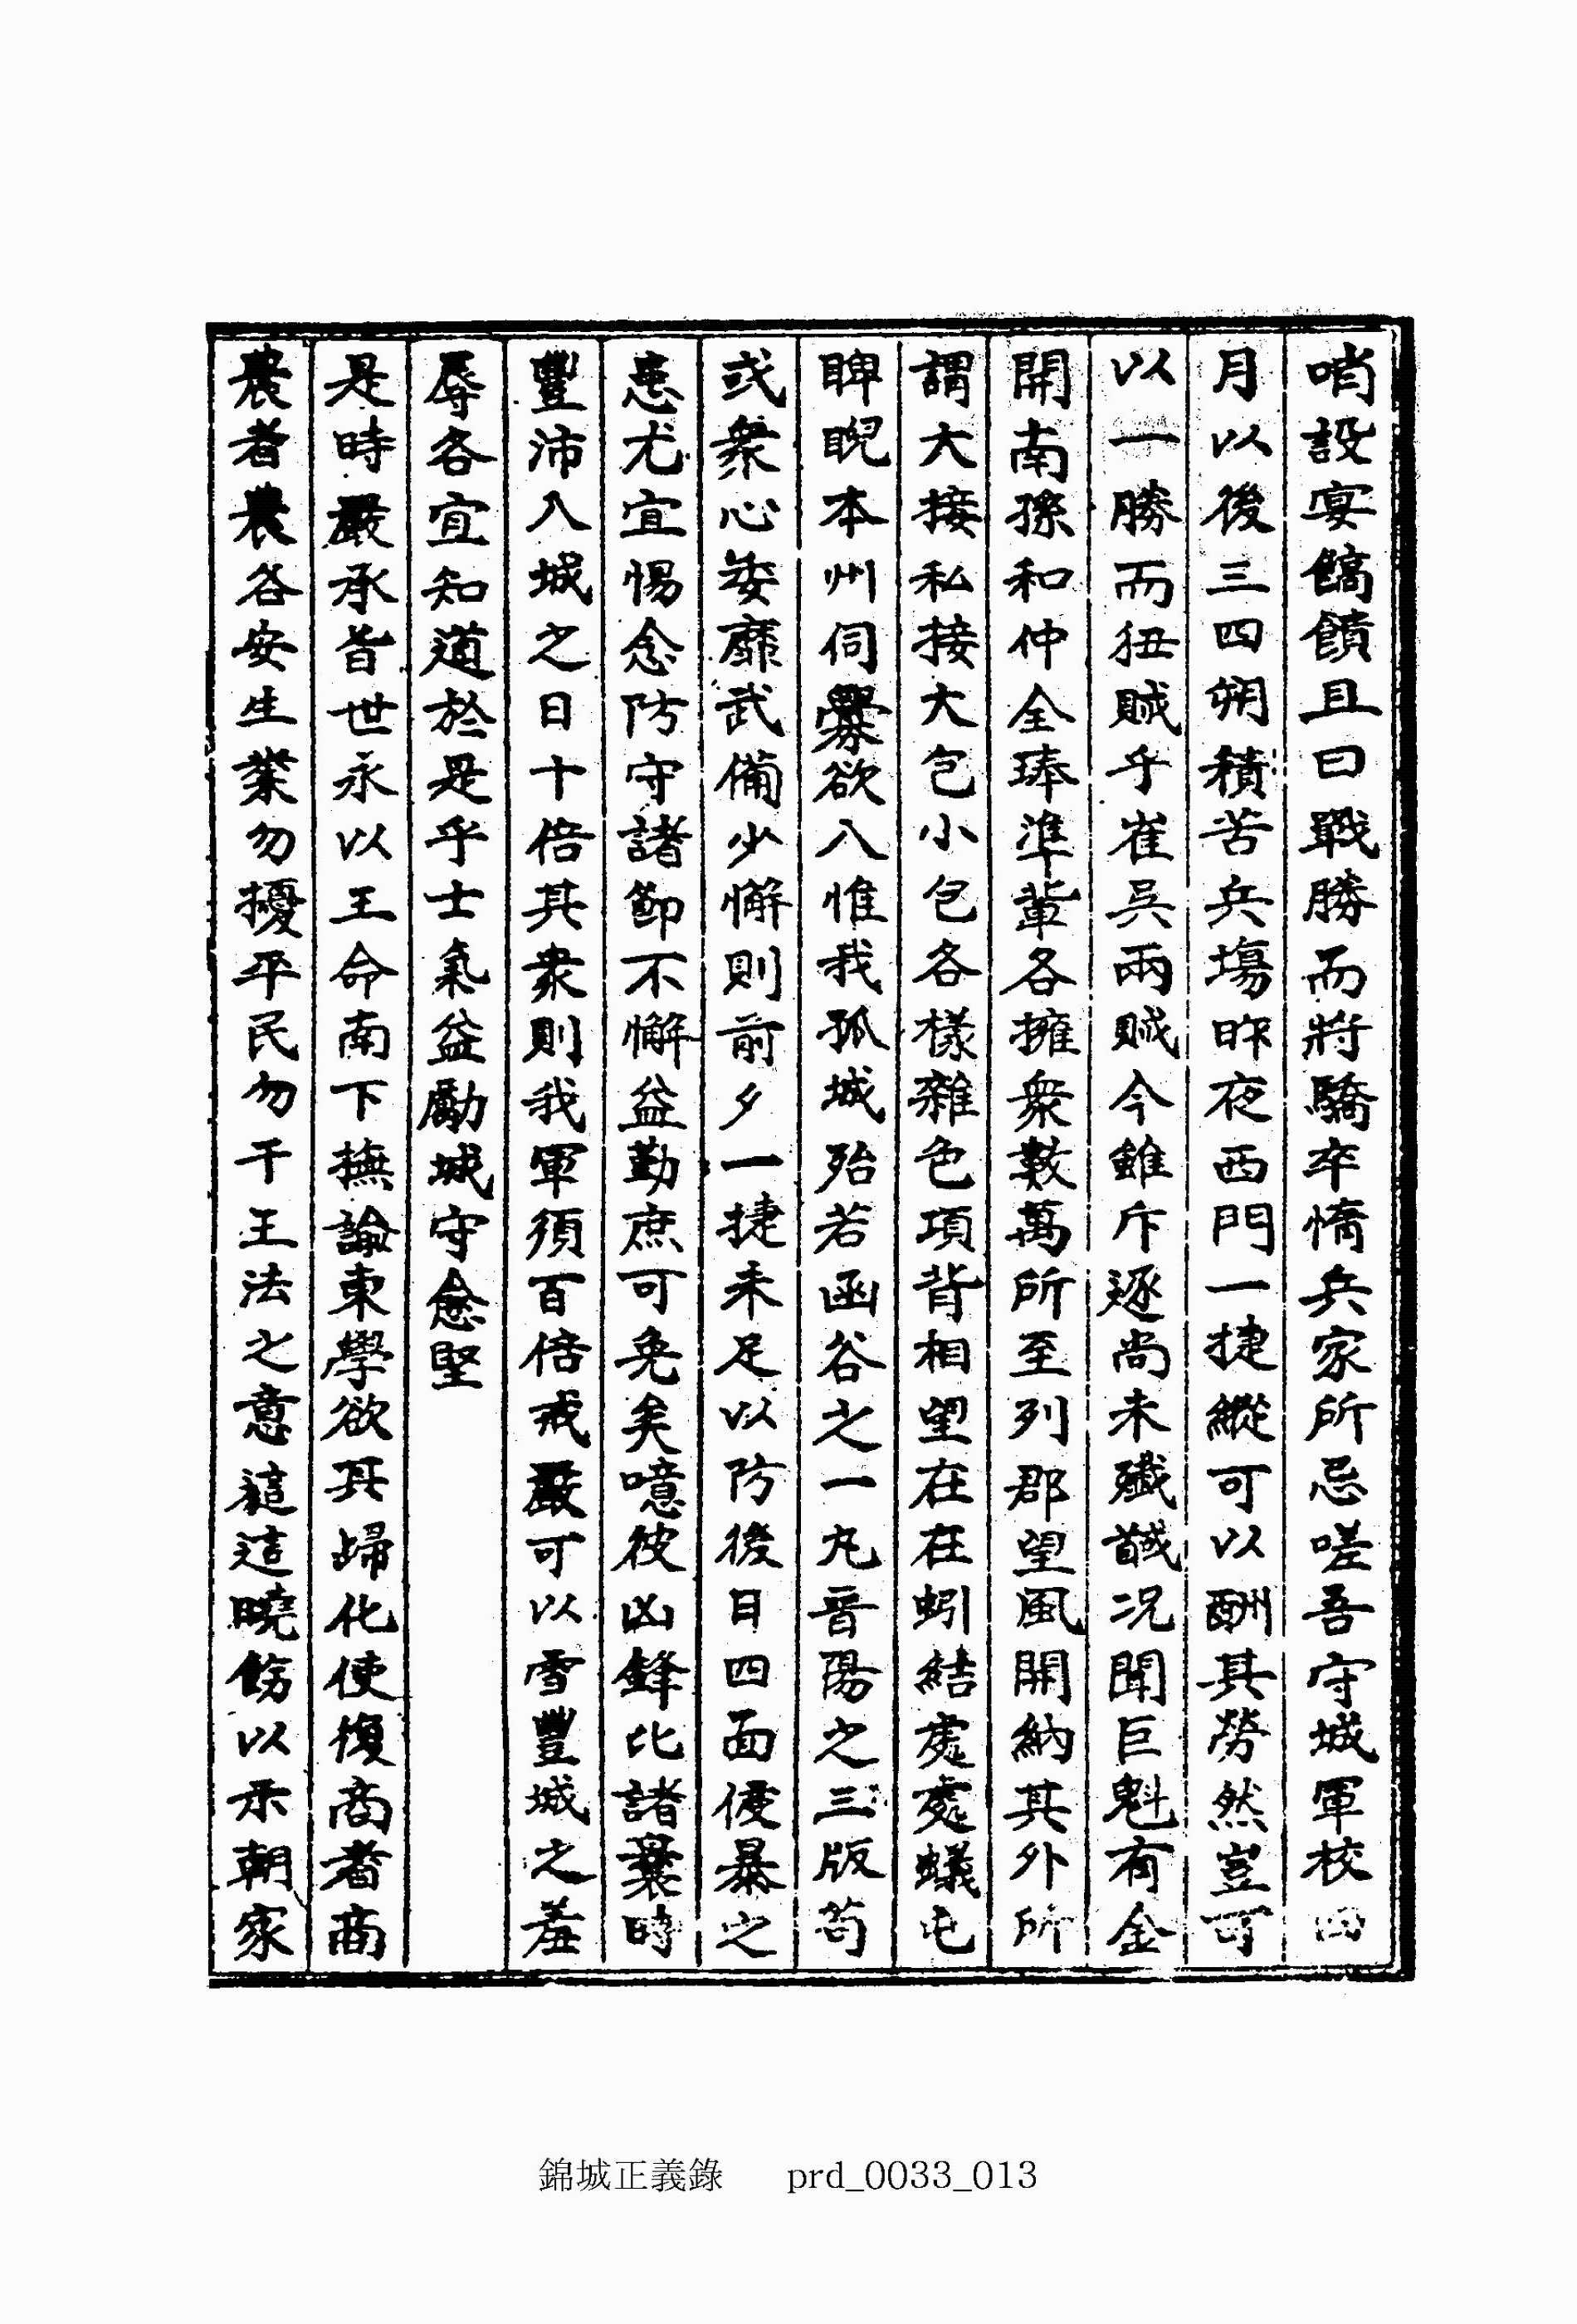 哨設宴饋饋且曰戰勝而將驕卒惰兵家所忌嗟吾守城軍校四
月以後三四朔積苦兵塲昨夜西門一捷縱可以酬其勞然豈可
以一勝而狃賊乎崔吳兩賊今雖斥逐尚未殲馘况聞巨魁有金
開南孫和仲全琫準輩各擁衆數萬所至列郡望風開納其外所
謂大接私接大包小包各樣雜色項背相望在在蚓結處處蟻屯
睥睨本州伺釁欲入惟我孤城殆若函谷之一丸晋陽之三版苟
或衆心委靡武備少懈則前夕一捷未足以防後日四面侵暴之
患尤宜惕念防守諸節不懈益勤庶可免矣噫彼凶鋒比諸曩時
豐沛入城之日十倍其衆則我軍須百倍戒嚴可以雪豐城之羞
辱各宜知道於是乎士氣益勵城守愈堅
是時嚴承旨世永以王命南下撫諭東學欲其歸化使復商者商
農者農各安生業勿擾平民勿干王法之意這這曉飭以示朝家
錦城正義錄 prd_0033_013